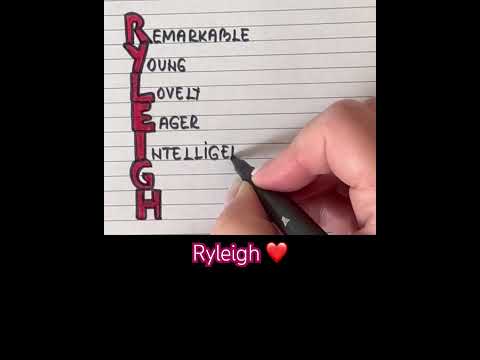 REMARKABLE
YOUNG
LOVELY
EAGER
INTELLIGE
G
H
Ryleigh ❤️